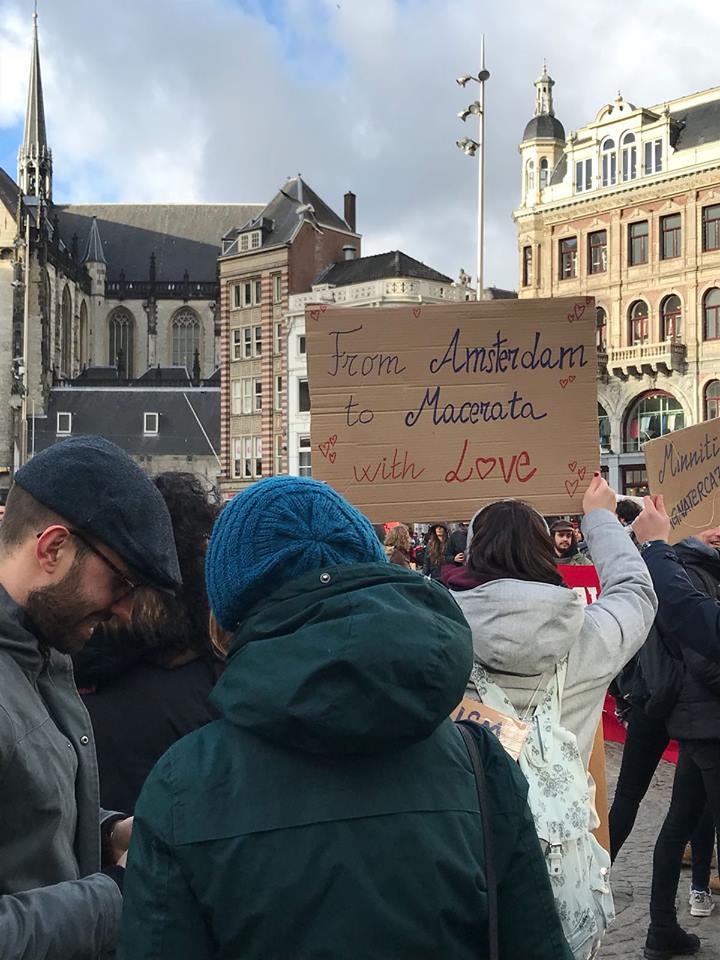 From Amsterdam
to Macerata
with Love
Minniti
ISM